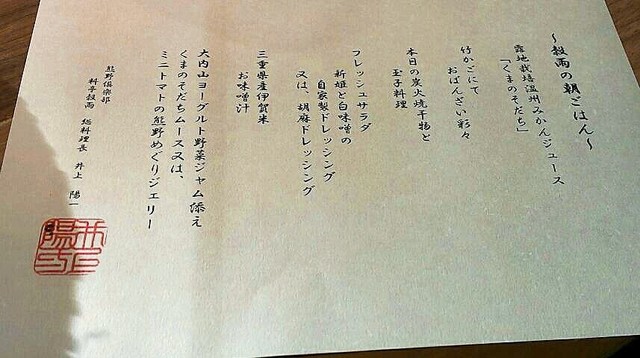 ～穀雨の朝ごはん～
露地栽培温州みかんジュース
「くまのそだち」
竹かごにて
おばんざい彩々
本日の炭火焼干物と
玉子料理
フレッシュサラダ
新姫と白味噌の
自家製ドレッシング
又は、胡麻ドレッシング
三重県産伊賀米
お味噌汁
大内山ヨーグルト野菜ジャム添え
くまのそだちムース又は、
ミニトマトの熊野めぐりジェリー
熊野倶楽部
料亭穀雨 総料理長 井上 陽一